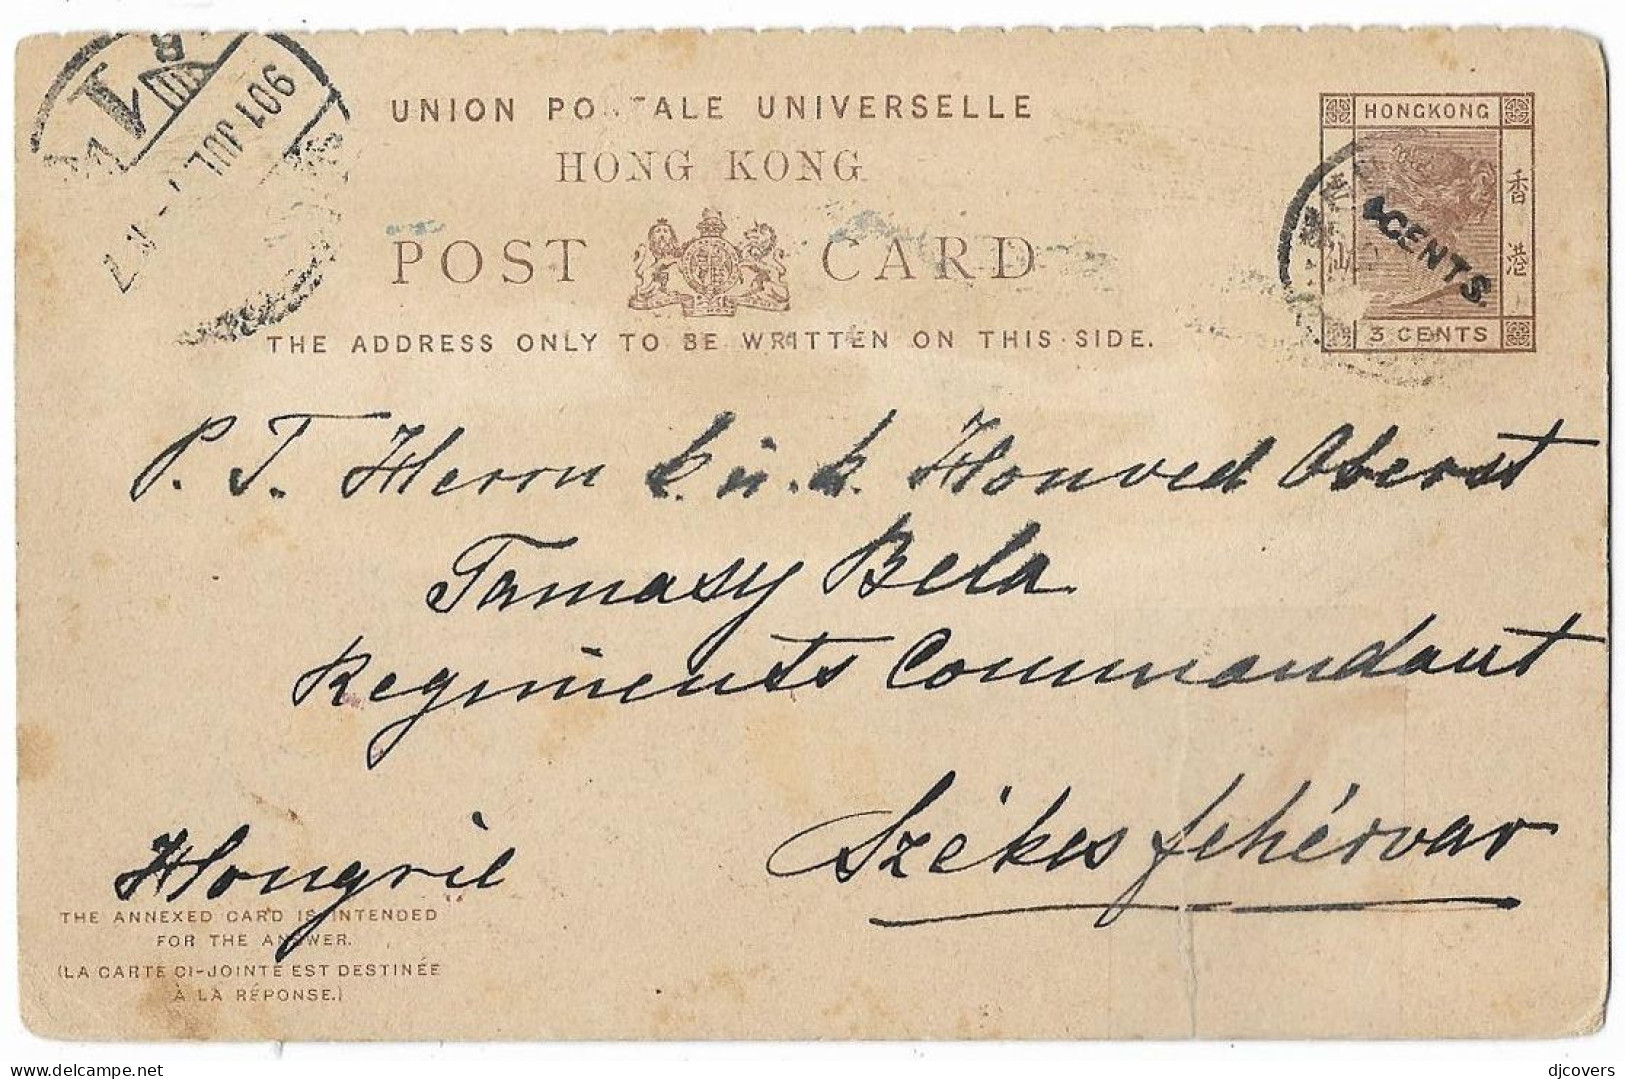 901 JUL
UNION POSTALE UNIVERSELLE
HONG KONG
POST CARD
THE ADDRESS ONLY TO BE WRITTEN ON THIS SIDE.
HONGKONG
香港
仙
4CENTS.
3 CENTS
P. T. Herrn k. u. k. Honved Oberst
Tamasy Bela
Regiments Commandant
Székes fehérvar
Hongrie
THE ANNEXED CARD IS INTENDED
FOR THE ANSWER.
(LA CARTE CI-JOINTE EST DESTINÉE
À LA RÉPONSE.)
djcovers